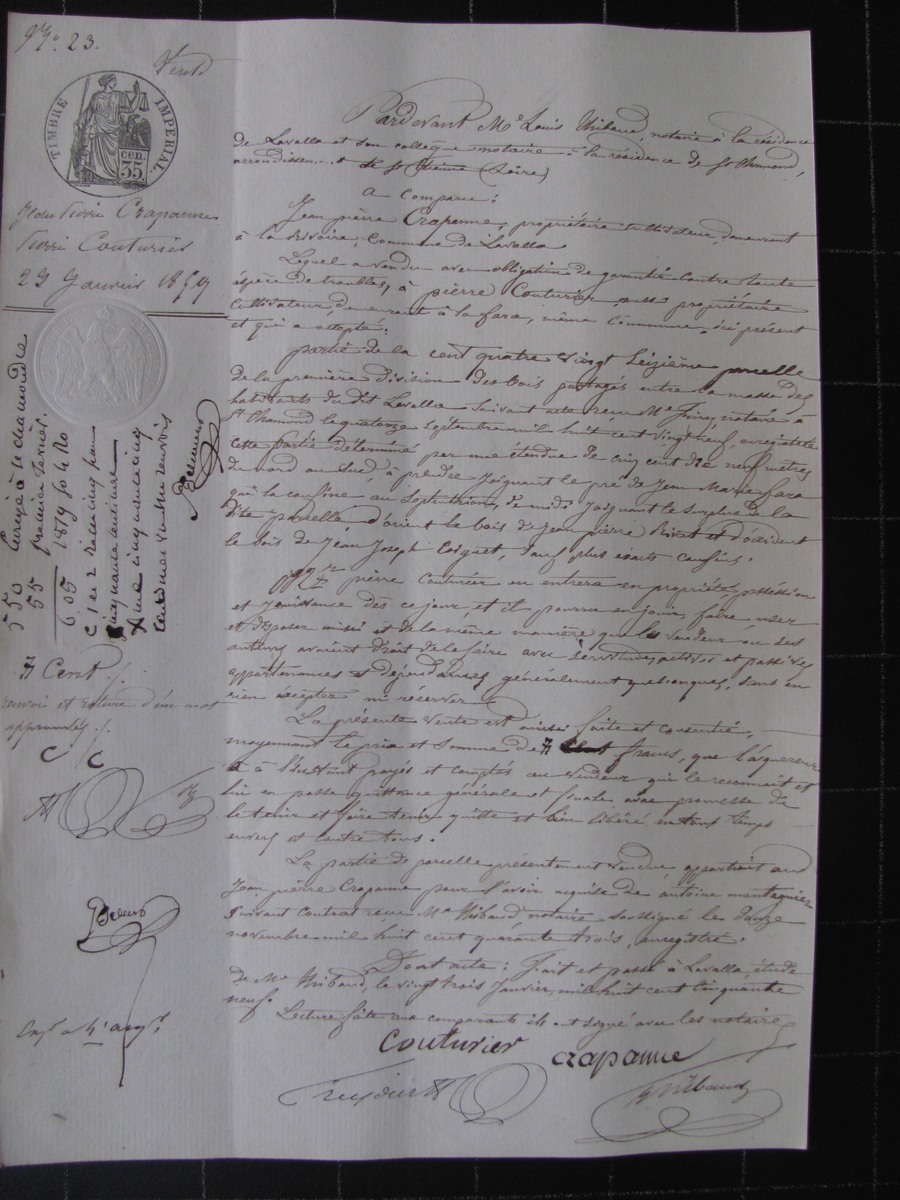 23.
Vente
TIMBRE IMPERIAL
35 cen.
Jean Pierre Crapanne
Pierre Couturier
23 Janvier 1859
Pardevant Me Louis Thibaud, notaire à la résidence
de Lavalla et son collègue notaire à la résidence de St Chamond,
arrondissem.t de St Etienne (Loire)
a comparu:
Jean pierre Crapanne, propriétaire cultivateur, demeurant
à la Rivoire, Commune de Lavalla
Lequel a vendu avec obligation de garantir contre toute
espèce de troubles, à pierre Couturier aussi propriétaire
cultivateur, demeurant à la fara, même Commune, ici présent
et qui a accepté.
partie de la cent quatre vingt seizième parcelle
de la première division des bois partagés entre la masse des
habitants du dit Lavalla suivant acte reçu Me notaire à
St Chamond le quatorze septembre mil huit cent vingt neuf, enregistré
Cette partie déterminée par une étendue de cinq cent dix neuf mètres
du nord au sud, à prendre joignant le pré de Jean Marie fara
qui la confine au septentrion, de midi joignant le surplus de la
dite parcelle, d'orient le bois de Jean pierre Rivat et d'occident
le bois de Jean Joseph Coignet, sauf plus exacts confins.
pierre Couturier en entrera en propriété, possession
et jouissance dès ce jour et il pourra en jouir, faire, user
et disposer ainsi et de la même manière que le vendeur ou ses
auteurs avaient droit de le faire avec servitudes actives et passives
appartenances et dépendances généralement quelconques, sans en
rien excepter ni réserver
La présente vente est ainsi faite et consentie,
moyennant le prix et somme de francs, que l'acquéreur
a à l'instant payés et comptés au vendeur qui le reconnait et
lui en passe quittance générale et finale, avec promesse de
le tenir et faire tenir quitte et bien libéré en tous temps
envers et contre tous.
La partie de parcelle présentement vendue appartient au
Jean pierre Crapanne pour l'avoir acquise de antoine montagnier
suivant contrat reçu Me Thibaud notaire soussigné le douze
novembre mil huit cent quarante trois, enregistré.
Dont acte: fait et passé à Lavalla, étude
de Me Thibaud, le vingt trois Janvier, mil huit cent cinquante
neuf.
Lecture faite aux comparants ils ont signé avec les notaires
Couturier crapanne
Thibaud
Enregé à St chamond le
Janvier
1859 fo
550
55
6,05
cinquante centimes
cinquante cinq
Cent
renvoi et rature d'un mot
approuvés
C C